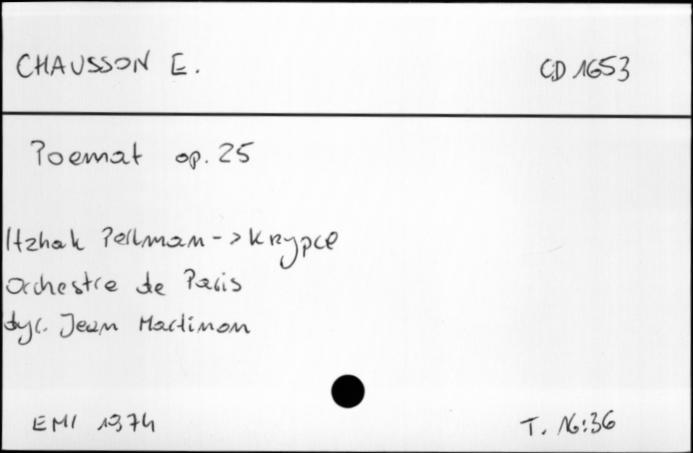 CHAUSSON E. CD 1653
Poemat op. 25
Itzhak Perlman -> skrzypce
Orchestre de Paris
dyr. Jean Martinon
EMI 1974 T. 16:36